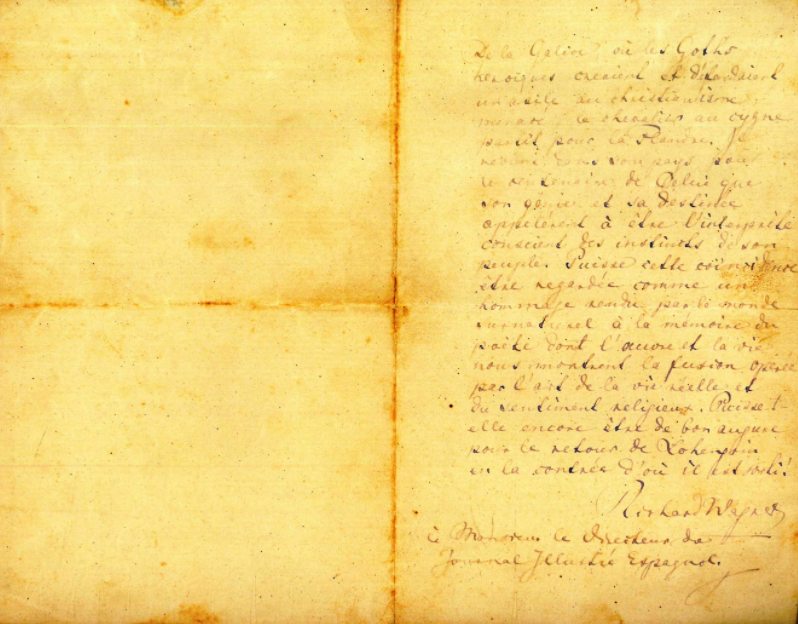 De la Galice où les Goths
heroiques creaient et défendaient
un asile au christianisme
menacé, le chevalier au cygne
partit pour la Flandre. Il
revient dans son pays pour
le centenaire de Celui que
son génie et sa destinée
appelèrent à être l'interprète
conscient des instincts de son
peuple. Puisse cette coïncidence
être regardée comme un
hommage rendu par le monde
surnaturel à la mémoire du
poète dont l'œuvre et la vie
nous montrent la fusion opérée
par l'art de la vie réelle et
du sentiment religieux. Puisse t-
elle encore être de bon augure
pour le retour de Lohengrin
en la contrée d'où il est sorti!
Richard Wagner
à Monsieur le Directeur du
Journal Illustré Espagnol.